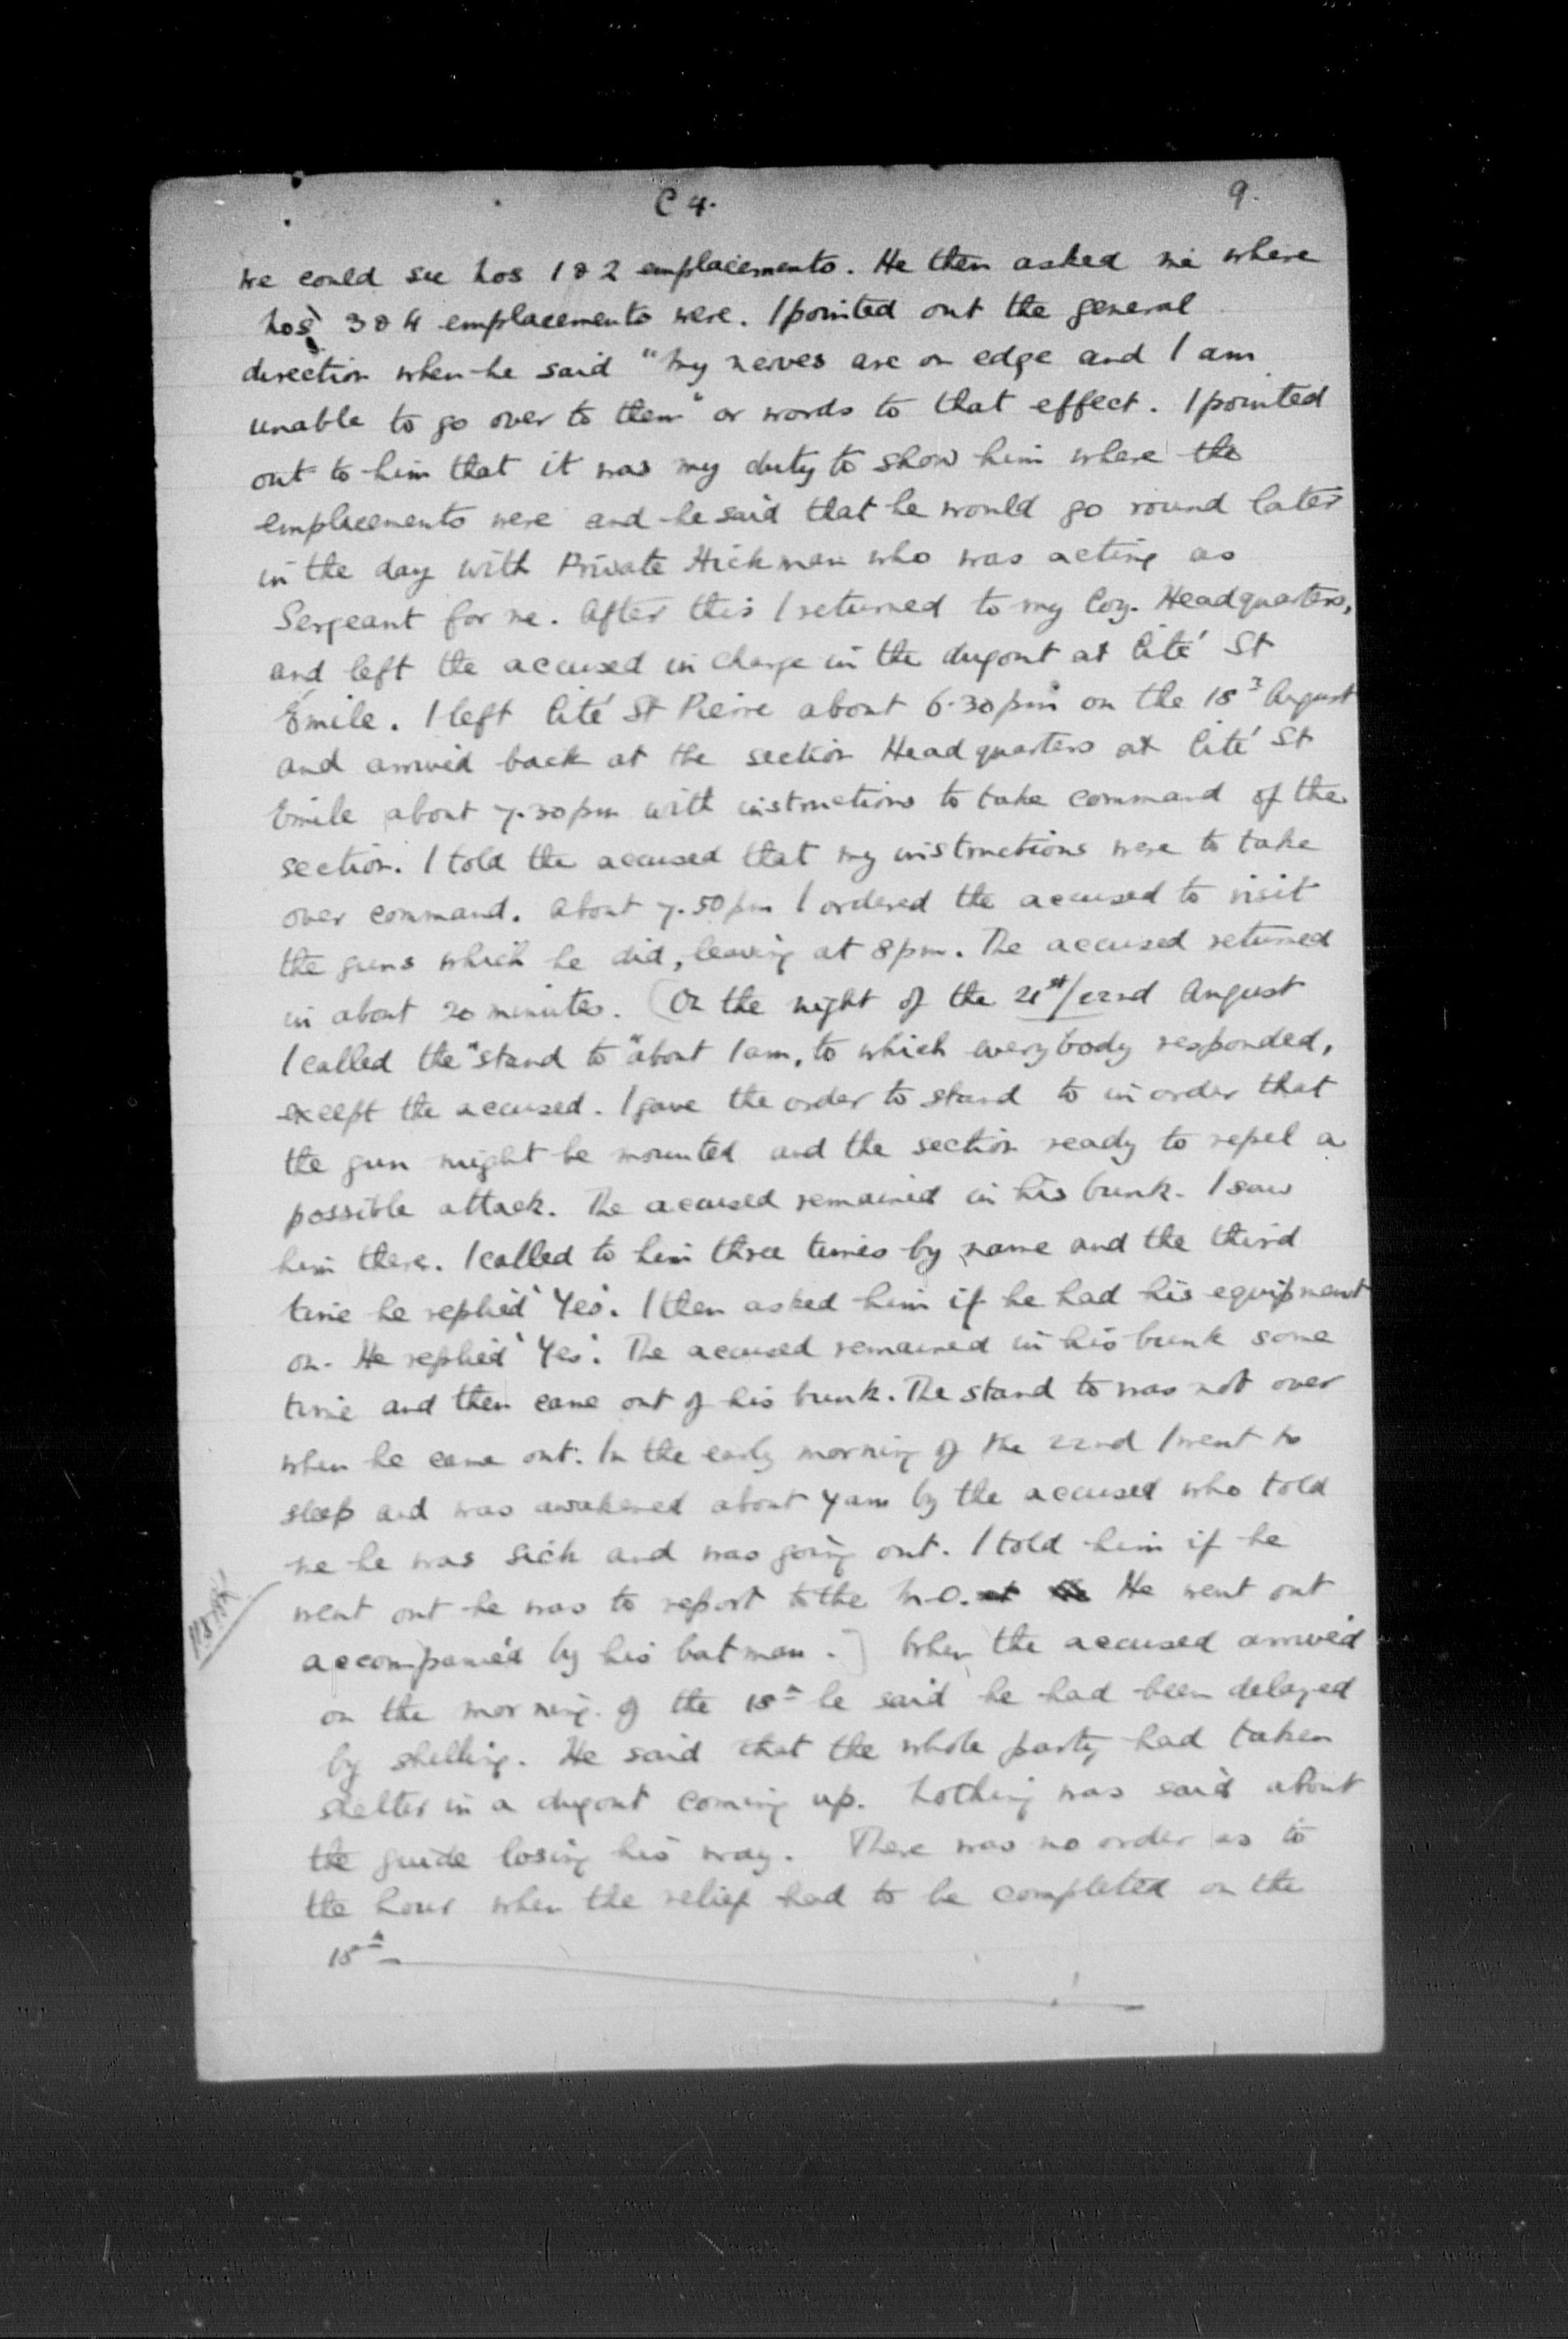 C 4.
9.
we could see Nos 1 & 2 emplacements. He then asked me where
Nos 3 & 4 emplacements were. I pointed out the general
direction when he said "my nerves are on edge and I am
unable to go over to them" or words to that effect. I pointed
out to him that it was my duty to show him where the
emplacements were and he said that he would go round later
in the day with Private Hickman who was acting as
Sergeant for me. After this I returned to my Coy. Headquarters,
and left the accused in charge in the dugout at Cité St
Émile. I left Cité St Pierre about 6.30pm on the 18th August
and arrived back at the section Headquarters at Cité St
Emile about 7.30pm with instructions to take command of the
section. I told the accused that my instructions were to take
over command. About 7.50pm I ordered the accused to visit
the guns which he did, leaving at 8pm. The accused returned
in about 20 minutes. [On the night of the 21st/22nd August
I called the "stand to" about 1am, to which everybody responded,
except the accused. I gave the order to stand to in order that
the gun might be mounted and the section ready to repel a
possible attack. The accused remained in his bunk. I saw
him there. I called to him three times by name and the third
time he replied 'Yes'. I then asked him if he had his equipment
on. He replied 'Yes'. The accused remained in his bunk some
time and then came out of his bunk. The stand to was not over
when he came out. In the early morning of the 22nd I went to
sleep and was awakened about 4am by the accused who told
me he was sick and was going out. I told him if he
went out he was to report to the M.O. He went out
accompanied by his batman.] When the accused arrived
on the morning of the 18th he said he had been delayed
by shelling. He said that the whole party had taken
shelter in a dugout coming up. Nothing was said about
the guide losing his way. There was no order as to
the hour when the relief had to be completed on the
18th